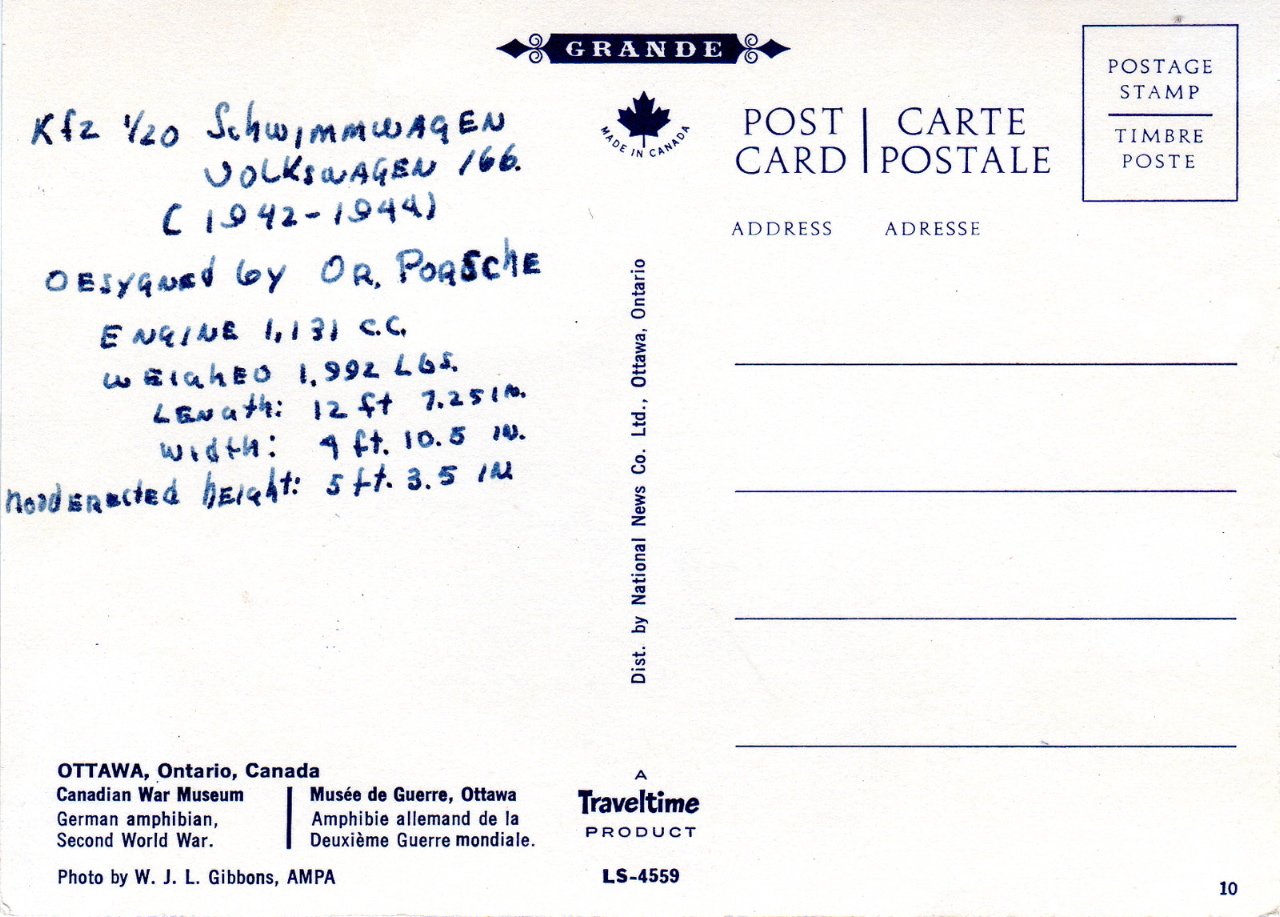 GRANDE
Kfz 1/20 SCHWIMMWAGEN
VOLKSWAGEN 166.
(1942-1944)
DESYGNED by DR. PORSCHE
ENGINE 1,131 C.C.
WEIGHED 1,992 LBS.
LENGTH: 12 ft 7.25 IN.
Width: 4 ft. 10.5 IN.
hood ERECTED hEIGht: 5 ft. 3.5 IN
MADE IN CANADA
POST CARD | CARTE POSTALE
POSTAGE
STAMP
TIMBRE
POSTE
ADDRESS ADRESSE
Dist. by National News Co. Ltd., Ottawa, Ontario
OTTAWA, Ontario, Canada
Canadian War Museum
German amphibian,
Second World War.
Musée de Guerre, Ottawa
Amphibie allemand de la
Deuxième Guerre mondiale.
Photo by W. J. L. Gibbons, AMPA
A
Traveltime
PRODUCT
LS-4559
10